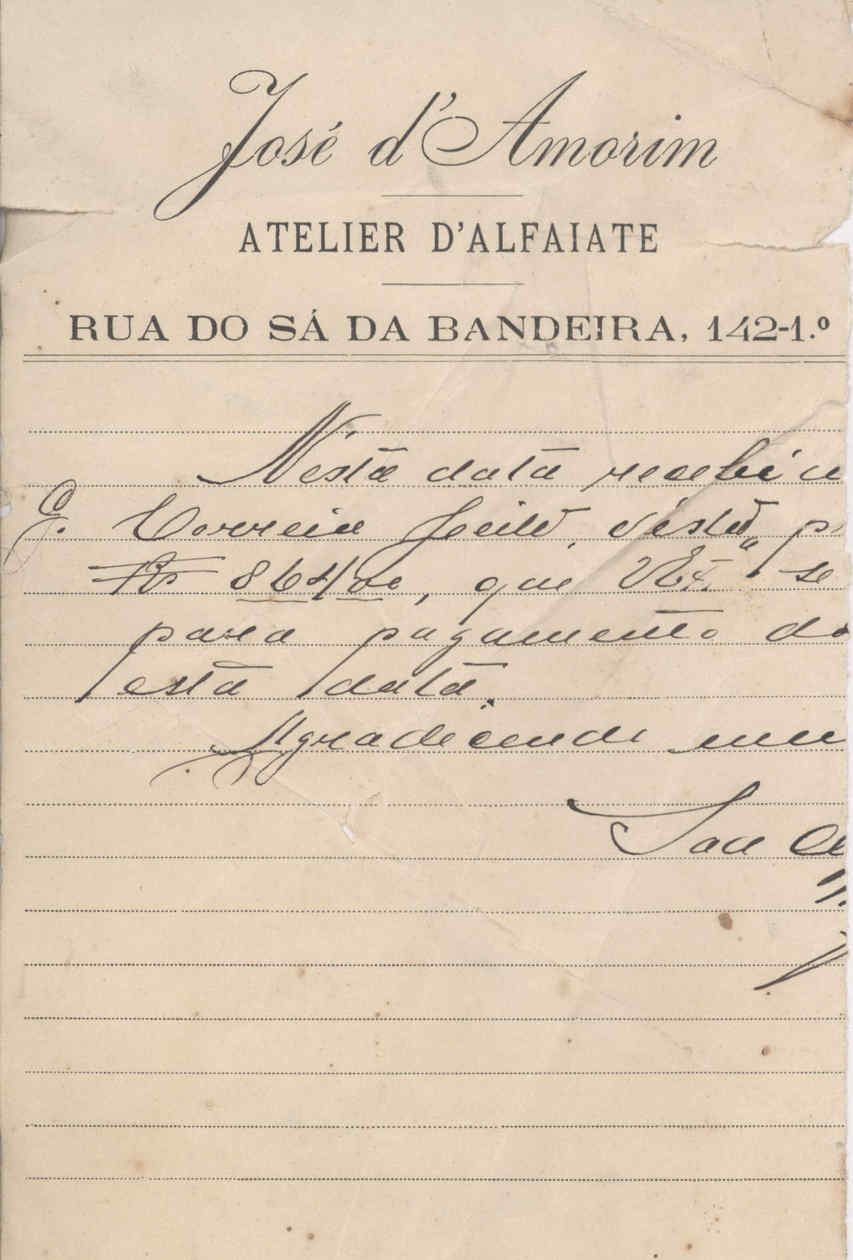 José d'Amorim
ATELIER D'ALFAIATE
RUA DO SÁ DA BANDEIRA, 142-1.º
Nesta data recebi
J. Correia Leite, desta, p
Rs 864 que V Ex.ª se
para pagamento d
esta data.
Agradecendo mui
Sou